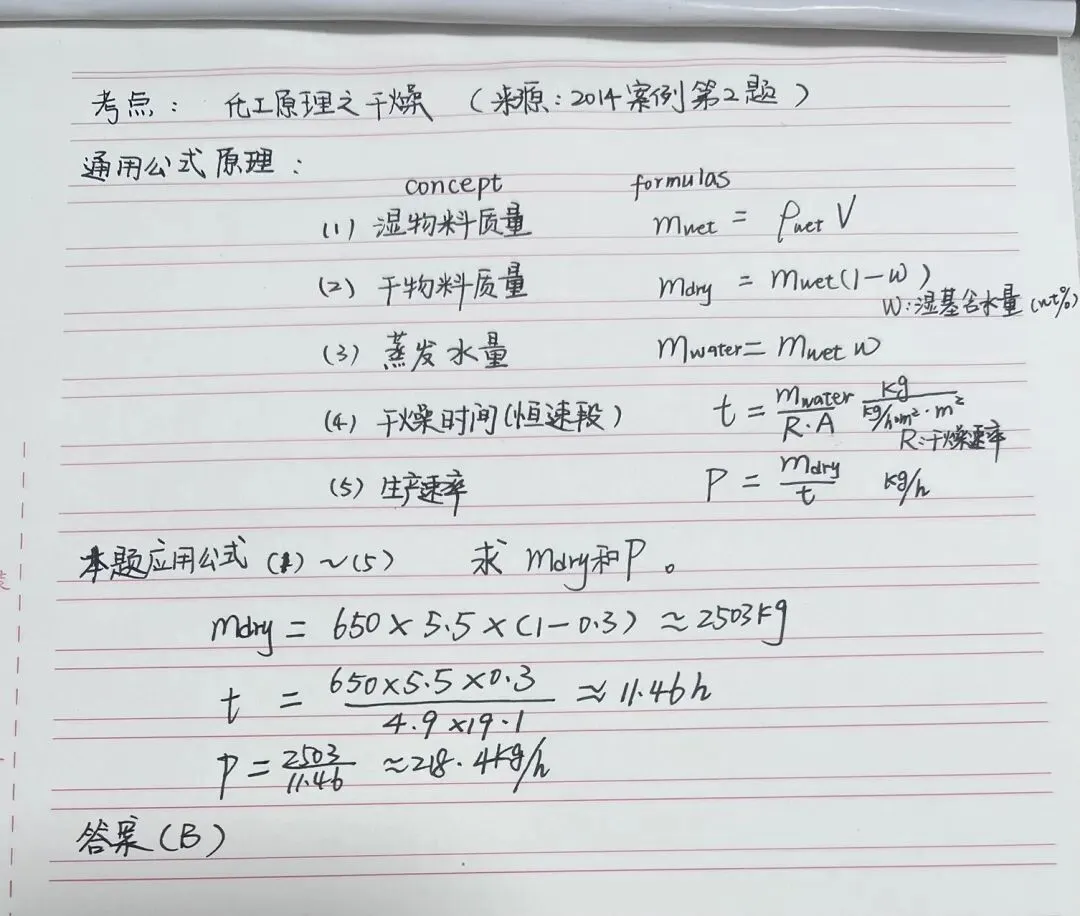 考点： 化工原理之干燥 （来源：2014案例第2题）
通用公式原理：
concept formulas
(1) 湿物料质量 mwet = ρwet V
(2) 干物料质量 mdry = mwet(1-w)
w:湿基含水量(wt%)
(3) 蒸发水量 mwater = mwet w
(4) 干燥时间(恒速段) t = mwater/R·A kg/kg/h·m²·m²
R:干燥速率
(5) 生产速率 P = mdry/t kg/h
本题应用公式(1)~(5) 求 mdry和P。
mdry = 650×5.5×(1-0.3) ≈2503kg
t = 650×5.5×0.3/4.9×19.1 ≈11.46h
P = 2503/11.46 ≈218.4kg/h
答案(B)